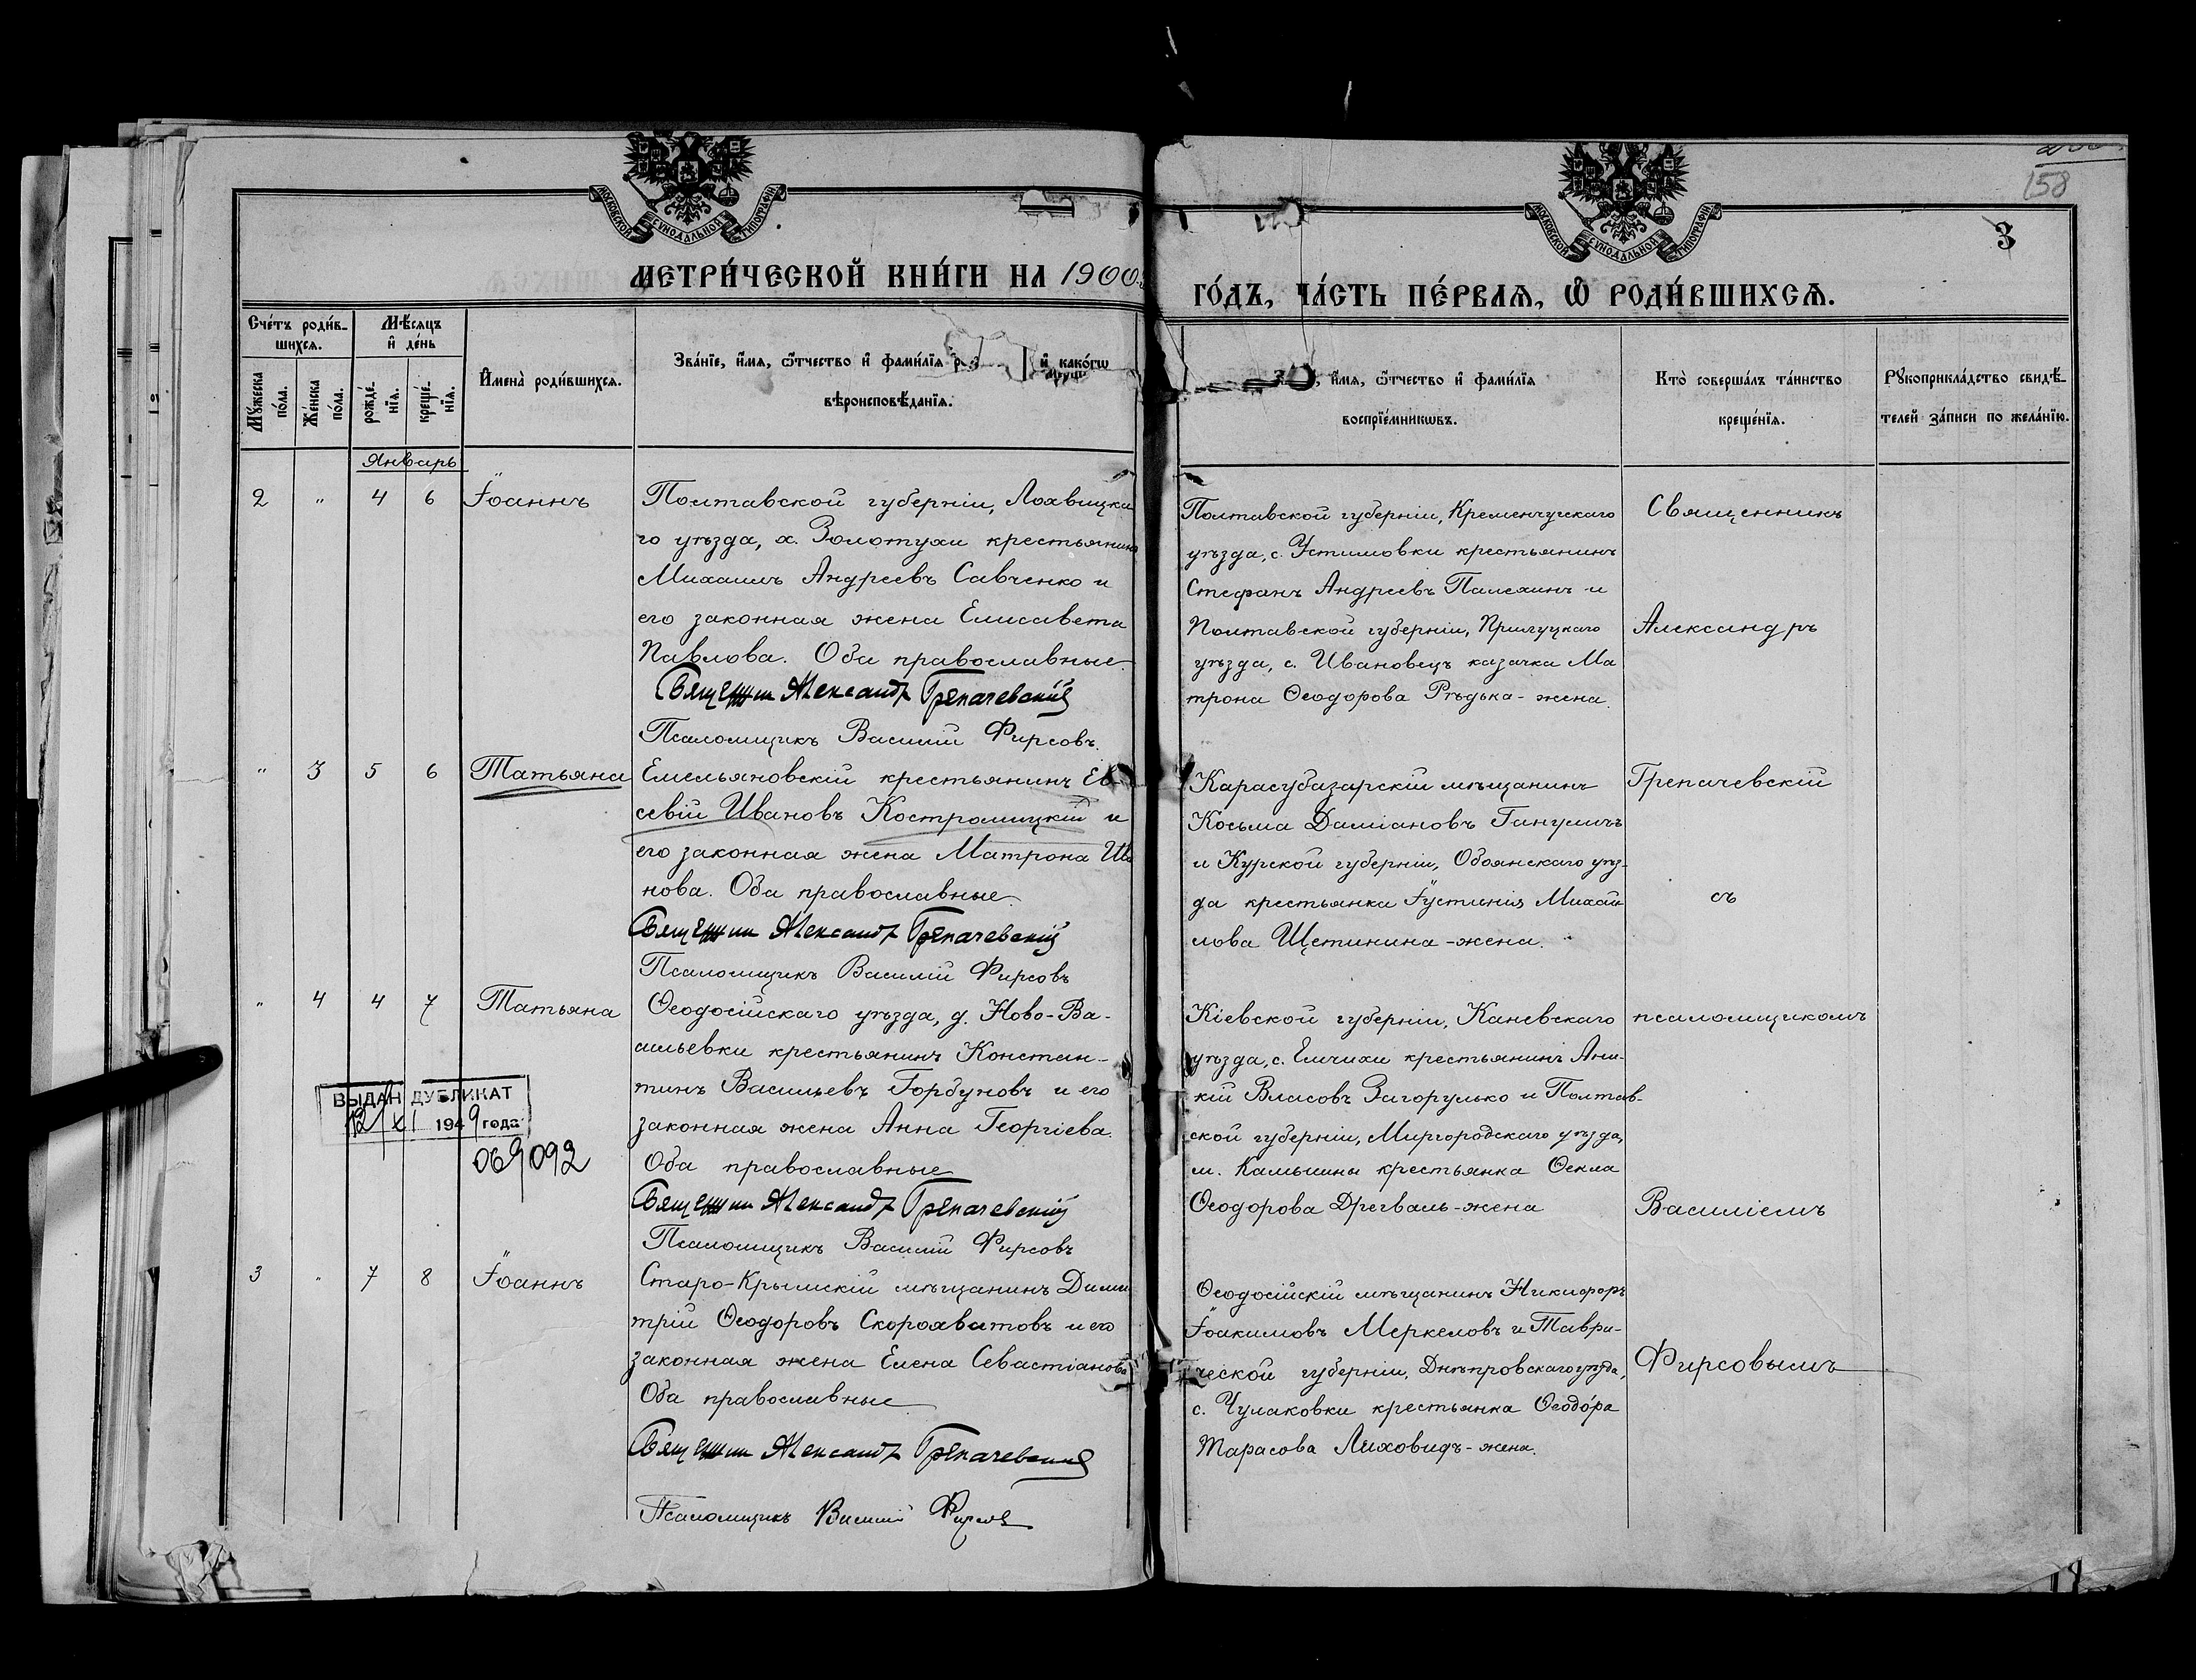 158
3
МОСКОВСКОЙ СѴНОДАЛЬНОЙ ТИПОГРАФІИ
МОСКОВСКОЙ СѴНОДАЛЬНОЙ ТИПОГРАФІИ
МЕТРИ́ЧЕСКОЙ КНИ́ГИ НА 1900
ГО́ДЪ, ЧА́СТЬ ПЕ́РВАѦ, Ѡ҆ РОДИ́ВШИХСѦ.
Сче́тъ роди́в-
шихсѧ.
Мѣ́сѧцъ
и҆ де́нь
Мꙋ́жеска
по́ла.
Же́нска
по́ла.
рожде́-
нїѧ.
креще́-
нїѧ.
И҆мена̀ роди́вшихсѧ.
Зва́нїе, и҆́мѧ, ѻ҆́тчество и҆ фами́лїѧ и҆ како́гѡ
вѣроисповѣ́данїѧ.
и҆́мѧ, ѻ҆́тчество и҆ фами́лїѧ
воспрїе́мникѡвъ.
Кто̀ соверша́лъ та́инство
креще́нїѧ.
Рꙋкоприкла́дство свидѣ́-
телей за́писи по жела́нїю.
Январь
2 " 4 6 Іоаннъ
Полтавской губерніи, Лохвицка
го уѣзда, х. Золотухи крестьянинъ
Михаилъ Андреевъ Савченко и
его законная жена Елисавета
Павлова. Оба православные.
Священник Александр Грепачевскій
Псаломщикъ Василій Фирсовъ.
Полтавской губерніи, Кременчугскаго
уѣзда, с. Устимовки крестьянинъ
Стефанъ Андреевъ Палехинъ и
Полтавской губерніи, Прилуцкаго
уѣзда, с. Ивановецъ казачка Ма
трона Ѳеодорова Рѣдька - жена.
Священникъ
Александръ
" 3 5 6 Татьяна
Емельяновскій крестьянинъ Ев-
севій Ивановъ Костромицкій и
его законная жена Матрона Ива
нова. Оба православные.
Священник Александр Грепачевскій
Псаломщикъ Василій Фирсовъ
Карасубазарскій мѣщанинъ
Косьма Даміановъ Гангуличъ
и Курской губерніи, Обоянскаго уѣз-
да крестьянка Іустинія Михаи
лова Щетинина - жена.
Грепачевскій
съ
" 4 4 7 Татьяна
Ѳеодосійскаго уѣзда, д. Ново-Ва-
сильевки крестьянинъ Констан-
тинъ Васильевъ Горбуновъ и его
законная жена Анна Георгіева.
Оба православные
Священник Александр Грепачевскій
Псаломщикъ Василій Фирсовъ
ВЫДАН ДУБЛИКАТ
12/XI 1949 года
069092
Кіевской губерніи, Каневскаго
уѣзда, с. Емчихи крестьянинъ Ани-
кій Власовъ Загорулько и Полтав-
ской губерніи, Миргородскаго уѣзда,
м. Камышны крестьянка Ѳекла
Ѳеодорова Дрегваль - жена
псаломщикомъ
Василіемъ
3 " 7 8 Іоаннъ
Старо-Крымскій мѣщанинъ Дими
трій Ѳеодоровъ Скорохватовъ и его
законная жена Елена Севастіанова
Оба православные
Священник Александр Грепачевскій
Псаломщикъ Василій Фирсов
Ѳеодосійскій мѣщанинъ Никифоръ
Іоакимовъ Меркеловъ и Таври-
ческой губерніи, Днѣпровскаго уѣзда,
с. Чулаковки крестьянка Ѳеодо́ра
Тарасова Лиховидъ - жена.
Фирсовымъ